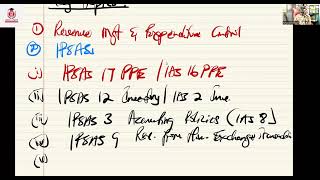 Key Topics:
① Revenue Mgt & Expenditure Control
② IPSASs
(i) IPSAS 17 PPE / IAS 16 PPE
(ii) IPSAS 12 Inventory / IAS 2 Inve
(iii) IPSAS 3 Accounting Policies (IAS 8)
(iv) IPSAS 9 Rev. from Exchange Transaction
(v)